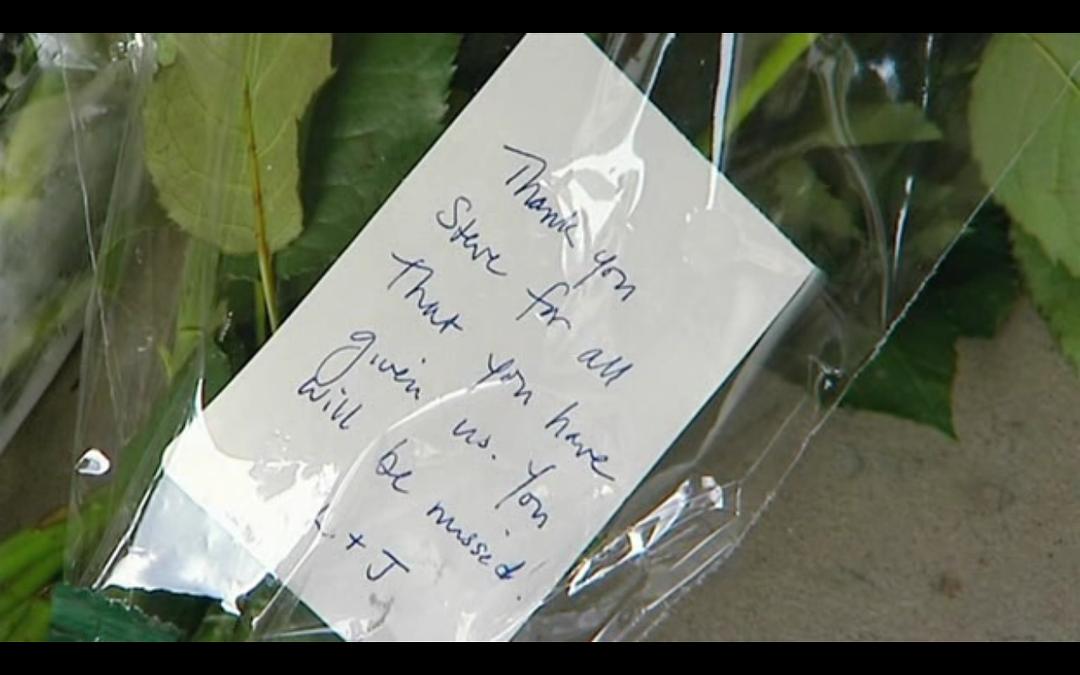 Thank you
Steve for all
That you have
given us. You
will be missed!
+ J